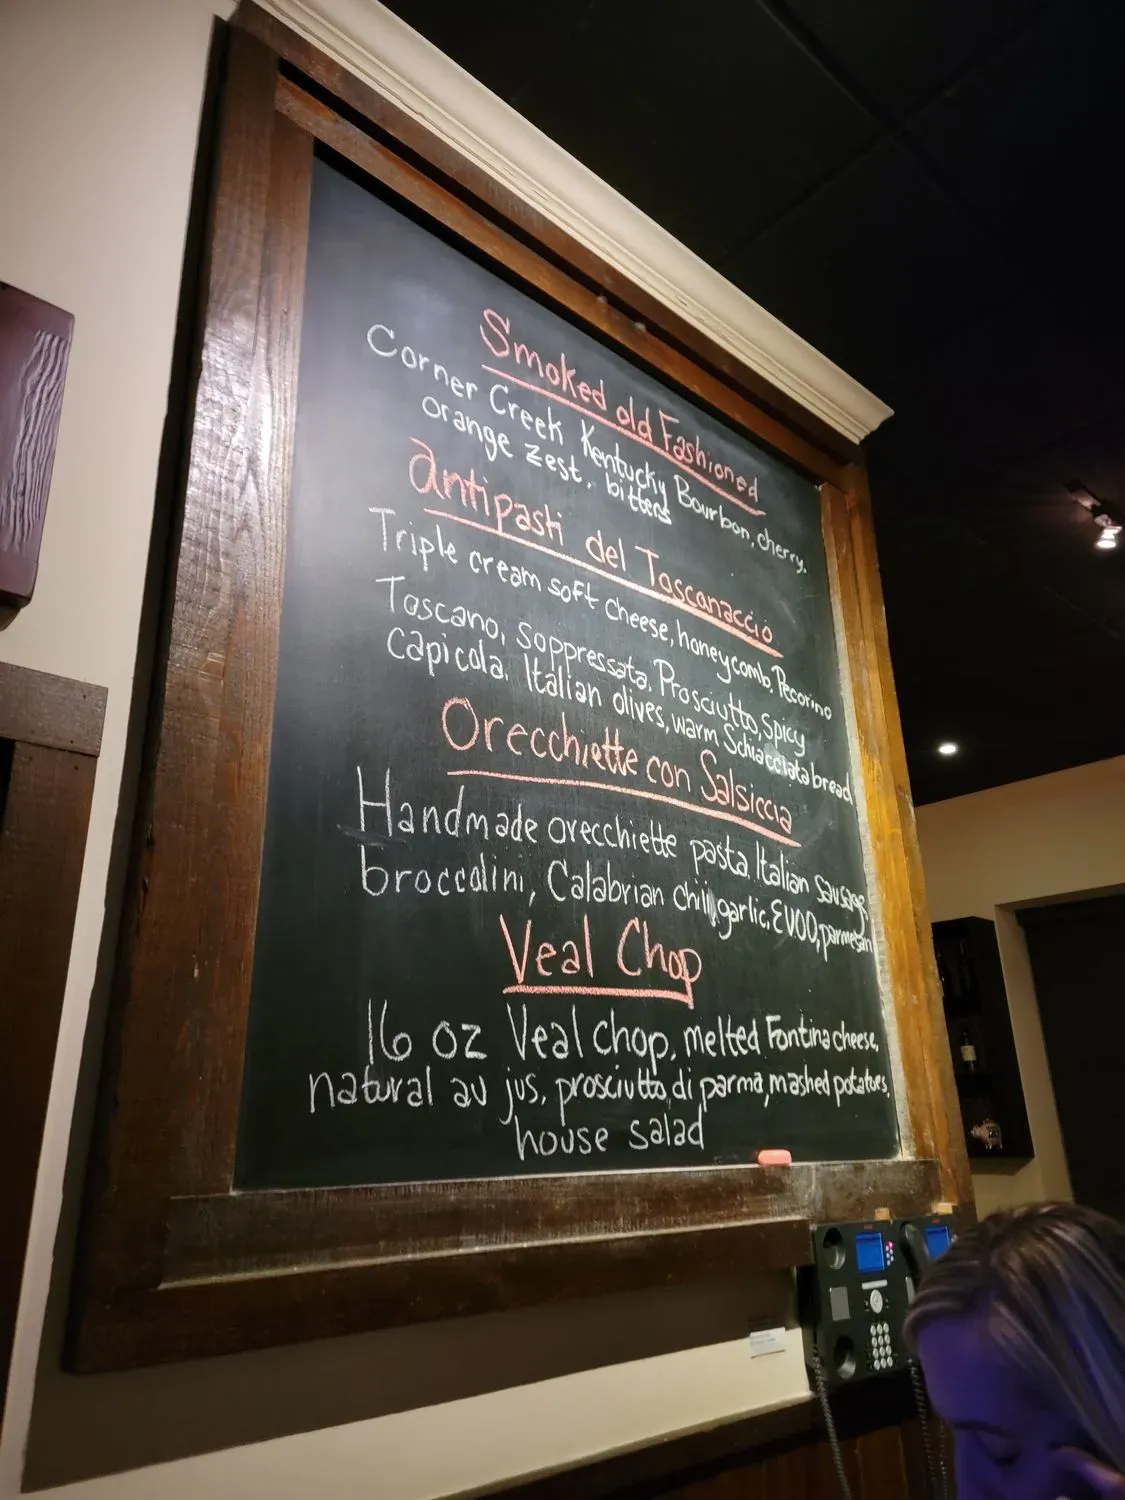 Smoked old Fashioned
Corner Creek Kentucky Bourbon, cherry,
orange zest, bitters
antipasti del Tosconaccio
Triple cream soft cheese, honeycomb, Pecorino
Toscano, Soppressata, Prosciutto, Spicy
capicola, Italian olives, warm Schiacciata bread
Orecchiette con Salsiccia
Handmade orecchiette pasta, Italian sausage,
broccolini, Calabrian chili, garlic, EVOO, parmesan
Veal Chop
16 oz Veal chop, melted Fontina cheese,
natural au jus, prosciutto di parma, mashed potatoes,
house salad